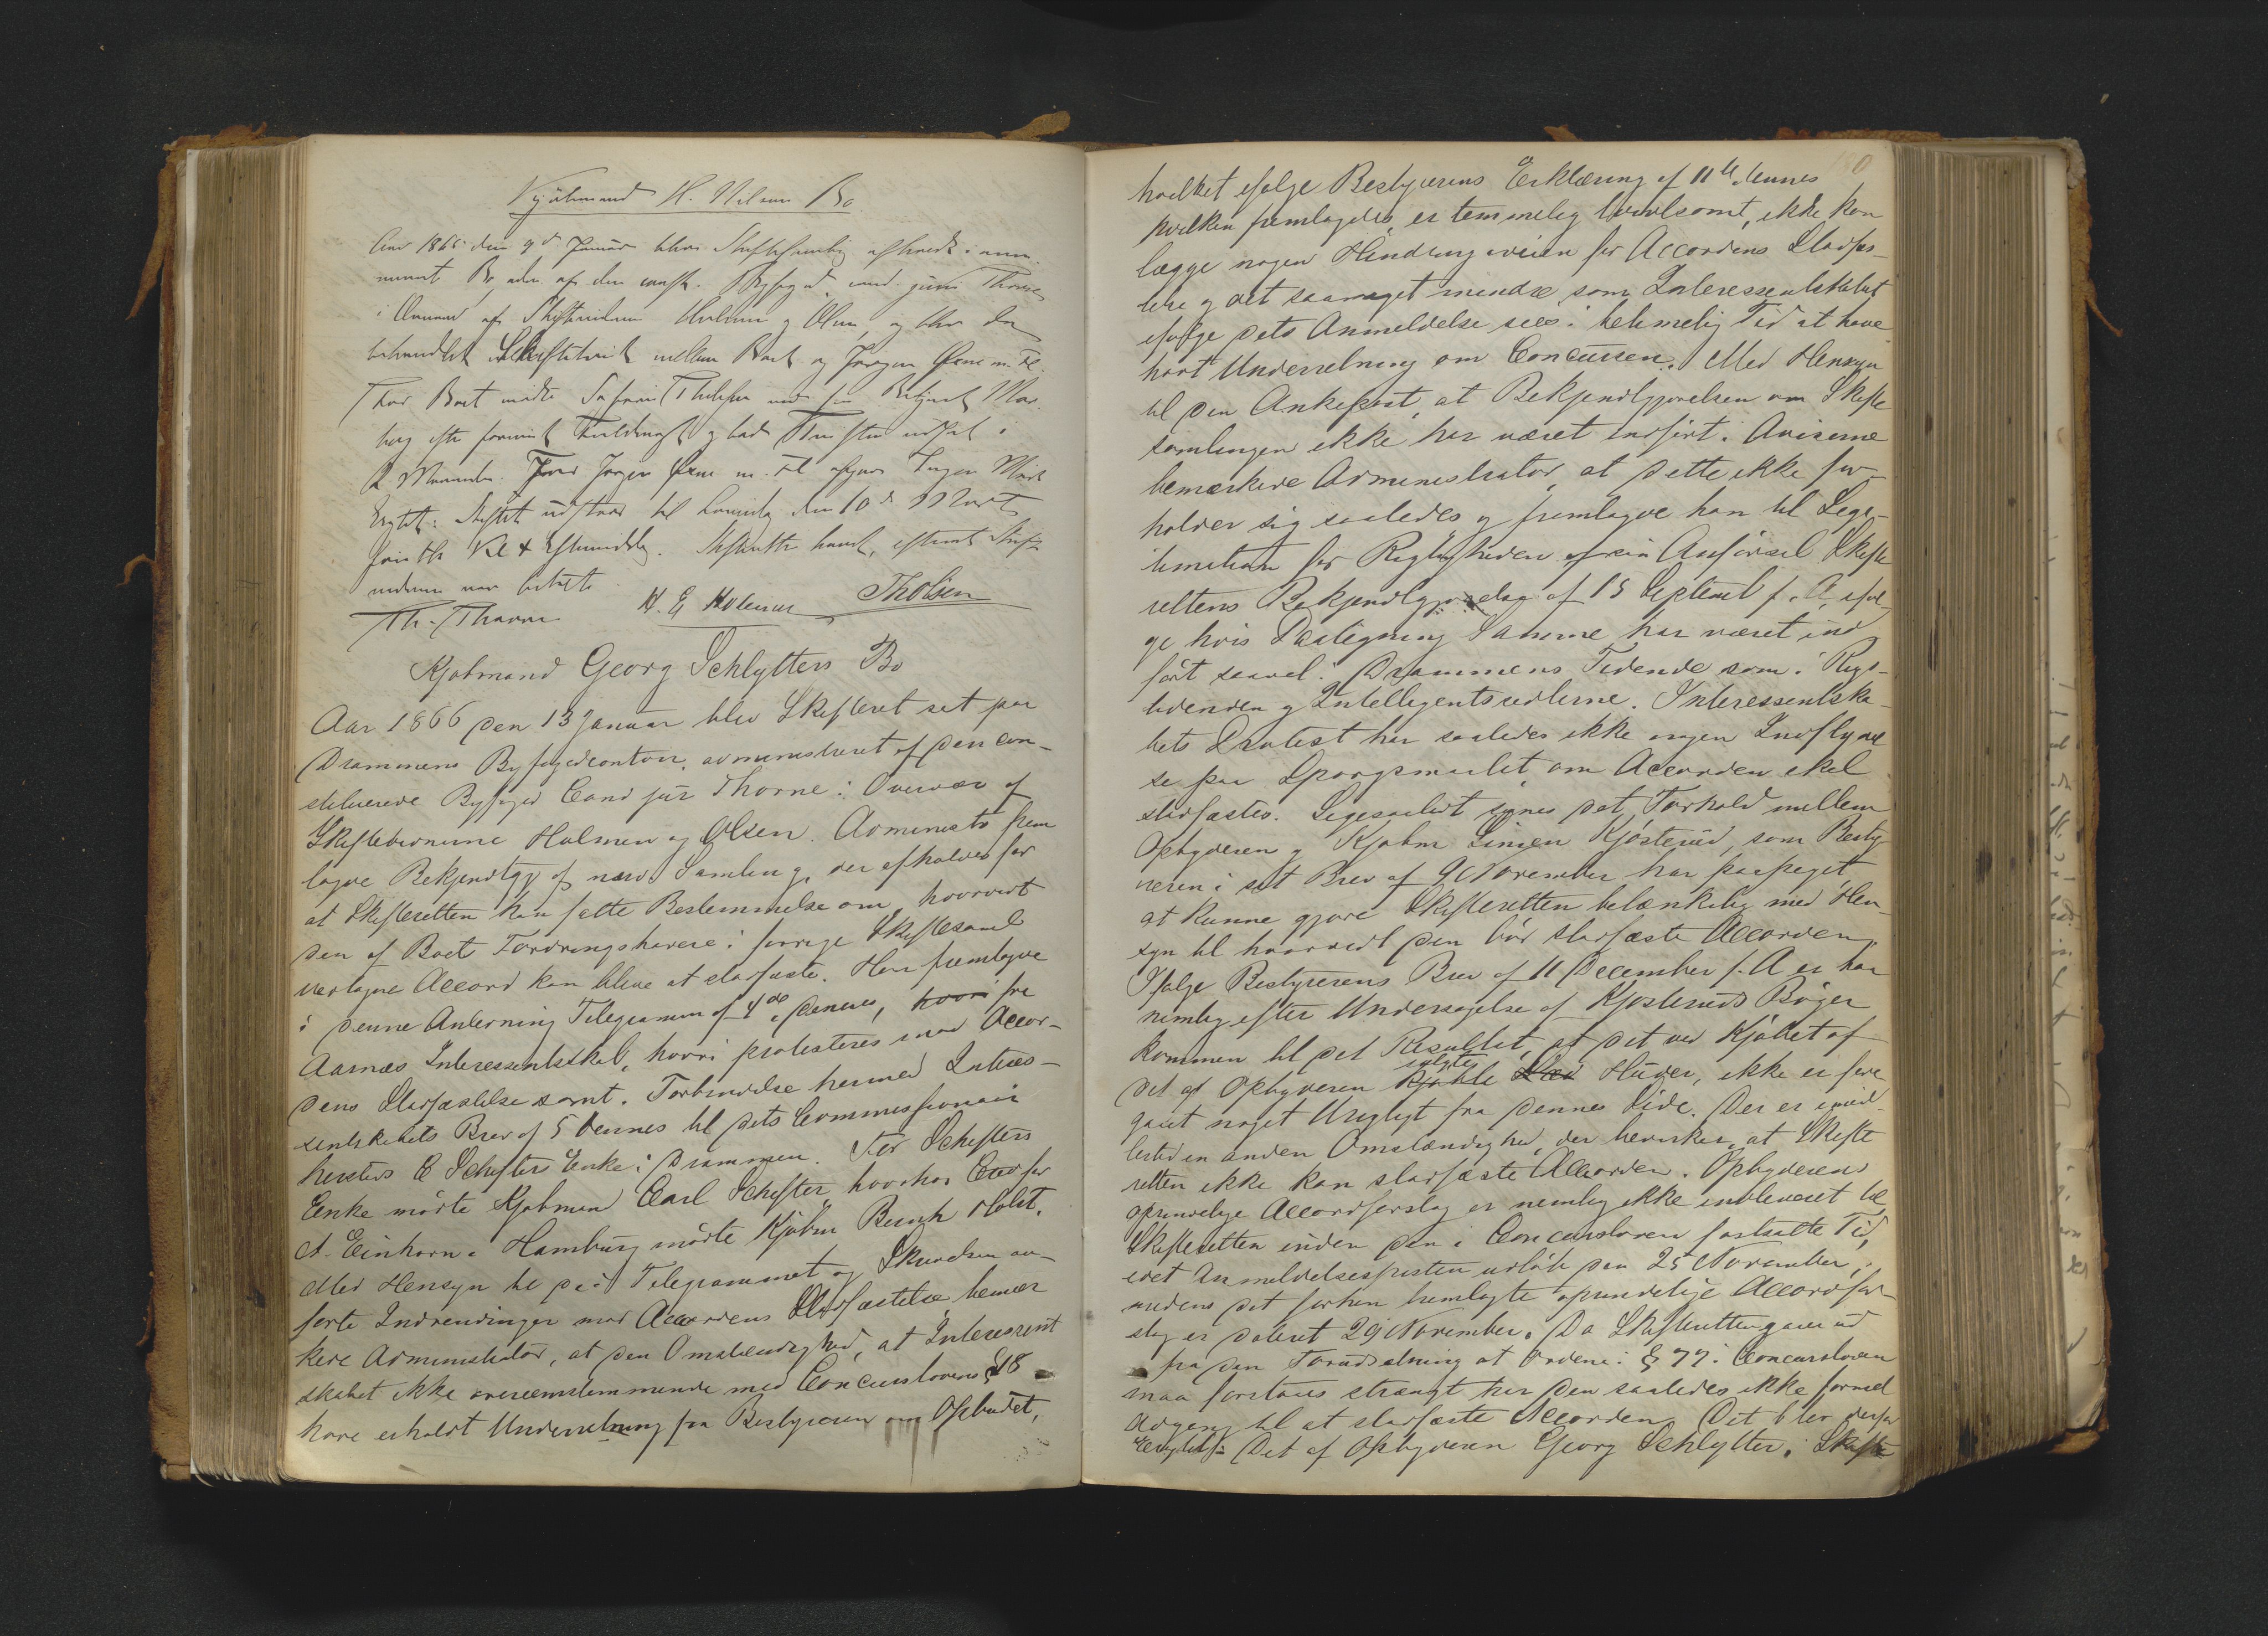 Kjöbmand H. Nilsens Bo
Aar 1866 den 9de Januar blev Skiftesamling afholdt i
Bo, adm. af den const. Byfoged, cand. juris Thorne
i Overvær af Skiftevidnerne Holmen og Olsen, og blev da
behandlet Skiftetvist mellem Boet og Jørgen m. Fl.
For Boet mødte
efter forevist og bad Tvisten udsat i
2 Maaneder. For Jørgen m. Fl. Ingen Mødt
Eragtet: Skiftet udstaar til Løverdag den 10de Marts
førstk Kl 4 Eftermiddag. Skifteretten hævet, efterat Skifte
vidnerne var betalte
Th. Thorne H. E Holmen Th Olsen
Kjøbmand Georg Schlytters Bo
Aar 1866 den 13 Januar blev Skifteret sat paa
Drammens Byfogedcontoir, administreret af den con-
stituerede Byfoged Cand jur Thorne i Overvær af
Skiftevidnerne Holmen og Olsen. Administr frem
lagde Bekjendtgj af nærv. Samling, der afholdes for
at Skifteretten kan fatte Bestemmelse om, hvorvidt
den af Boets Fordringshavere i forrige Skiftesaml
vedtagne Accord kan blive at stadfæste. Han fremlagde
i denne Anledning Telegramm af 4de dennes, hvori fra
Aarnæs Interessentskab, hvori protesteres mod Accor-
dens Stadfæstelse samt i Forbindelse hermed Interes-
sentskabets Brev af 5 dennes til dets Commissionair
hersteds C Schefters Enke i Drammen. For Schefters
Enke mødte Kjøbmand Carl Schefter, hvorhos for
A. Einhorn i Hamburg mødte Kjøbm Bernh Holst.
Med Hensyn til de i Telegrammet og Skrivelsen an-
førte Indvendinger mod Accordens Stadfæstelse bemær
kede Administrator, at den Omstændighed, at Interessent
skabet ikke overeensstemmende med Concurslovens § 48
have erholdt Underretning fra Bestyreren om Opbudet,
hvilket ifølge Bestyrerens Erklæring af 11te dennes
hvilken fremlagdes, er temmelig tvivlsomt, ikke kan
lægge nogen Hindring iveien for Accordens Stadfæs-
telse og det saameget mindre som Interessentskabet
ifølge dets Anmeldelse sees i betimelig Tid at have
havt Underretning om Concursen. Med Hensyn
til den Ankepost, at Bekjendtgjørelsen om Skifte
samlingen ikke har været indført i Aviserne
bemærkede Administrator, at dette ikke for-
holder sig saaledes og fremlagde han til Legi-
timation for Rigtigheden af sin Anførsel Skifte
rettens Bekjendtgj. dag af 15 Septembr f. A, iføl-
ge hvis Paategning Samme har været ind
ført saavel i Drammens Tidende som i Rigs-
tidenden og Intelligentssedlerne. Interessentska-
bets Protest har saaledes ikke nogen Indflydel
se paa Spørgsmaalet, om Accorden skal
stadfæstes. Ligesaalidt synes det Forhold mellem
Opbyderen og Kjøbm Simen Kjösterud, som Besty-
reren i sit Brev af 9 November har paapeget
at kunne gjøre Skifteretten betænkelig med Hen-
syn til hvorvidt den bør stadfæste Accorden.
Ifølge Bestyrerens Brev af 11 December f. A er han
nemlig efter Undersøgelse af Kjösteruds Bøger
kommen til det Resultat, at det ved Kjøbet af
det af Opbyderen kjøbte solgte Huder, ikke er fore
gaaet noget Urigtigt fra dennes Side. Der er imid-
lertid en anden Omstændighed, der bevirker, at Skifte
retten ikke kan stadfæste Accorden. Opbyderens
oprindelige Accordforslag er nemlig ikke indleveret til
Skifteretten inden den i Concursloven fastsatte Tid,
idet Anmeldelsesfristen udløb den 25 November,
medens det forhen fremlagte oprindelige Accordfor-
slag er dateret 29 November. Da Skifteretten gaar ud
fra den Forudsætning at Ordene i § 77 i Concursloven
maa forstaaes strængt har den saaledes ikke formel
Adgang til at stadfæste Accorden. Det blev derfor
Eragtet: Det af Opbyderen Georg Schlytter i Skifte